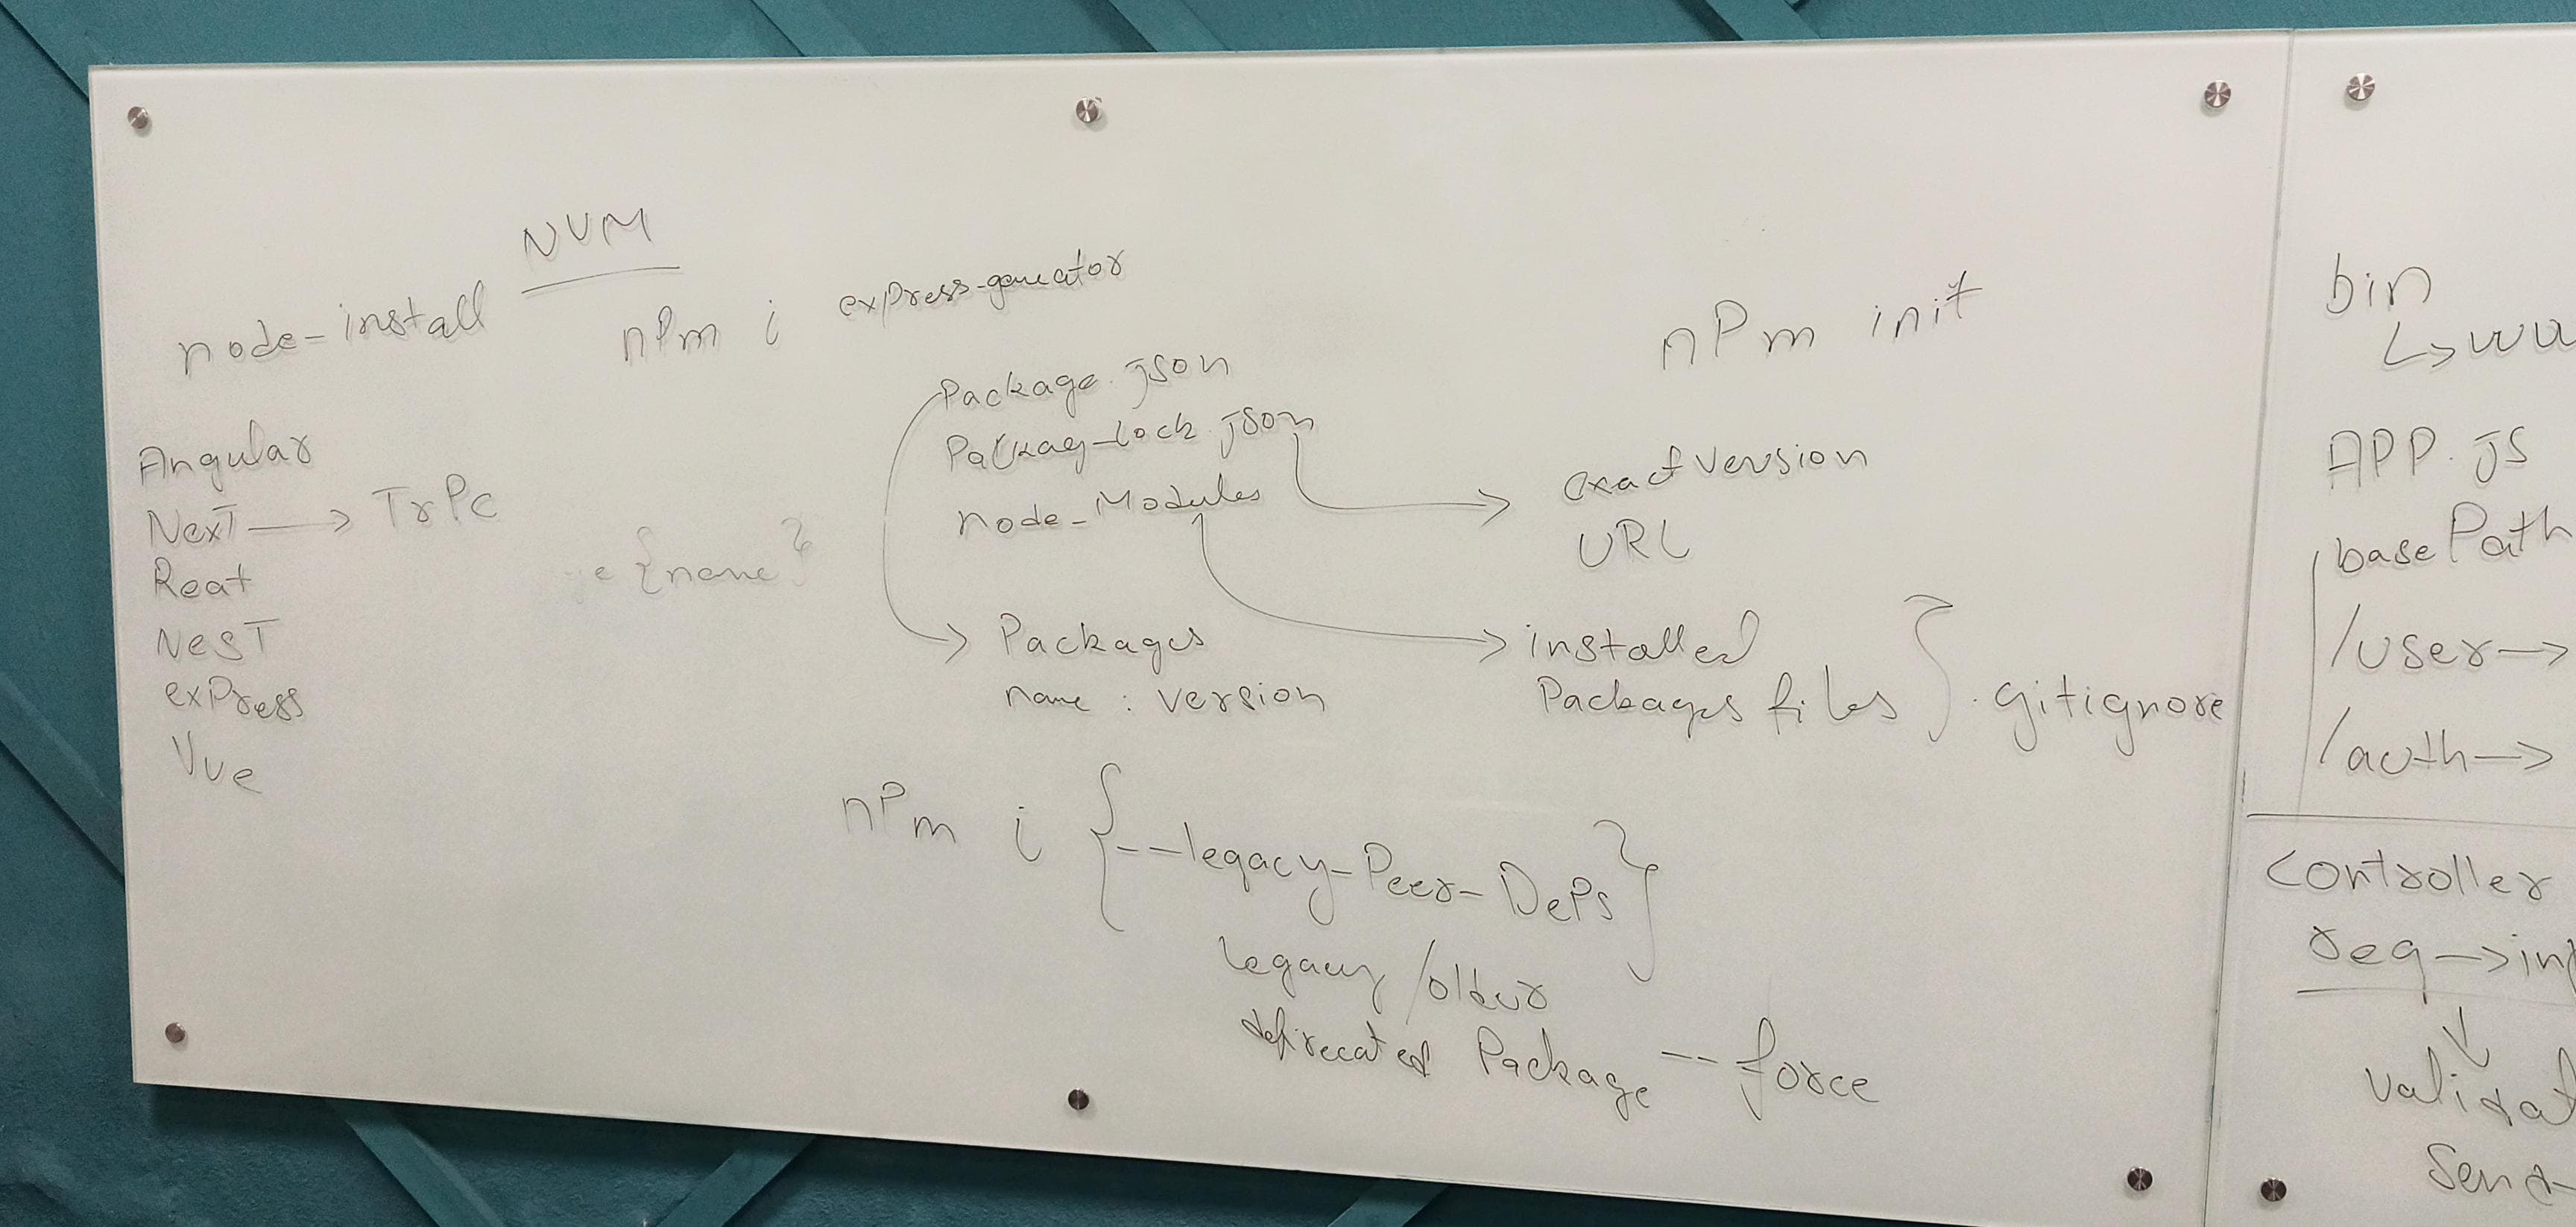 NVM
node-install
npm i express-geneator
npm init
Angular
NexT → TrPc
Reat
NesT
exPress
Vue
e {name}
Package.json
Packag-lock.json
node_Modules
exact version
URL
→ Packages
name : version
→ installed
Packages files } .gitignore
nPm i {--legacy-Peer-DePs}
legacy /older
depricated Package --force
bin
↳
APP.JS
basePath
/user →
/auth →
Controller
req →
↓